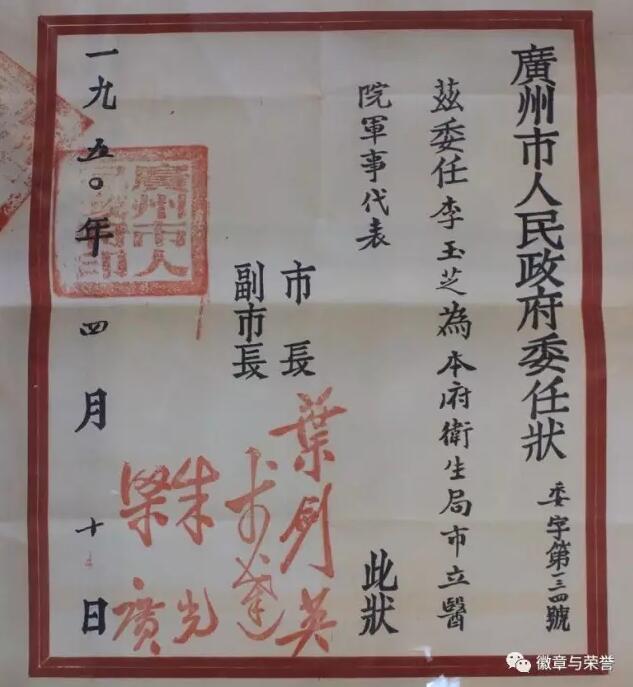 廣州市人民政府委任狀
委字第一三四號
茲委任李玉芝為本府衛生局市立醫
院軍事代表
此狀
市長
葉劍英
副市長
李章達
朱光
梁廣
一九五〇年四月十日
廣州市人民政府印
徽章与荣誉